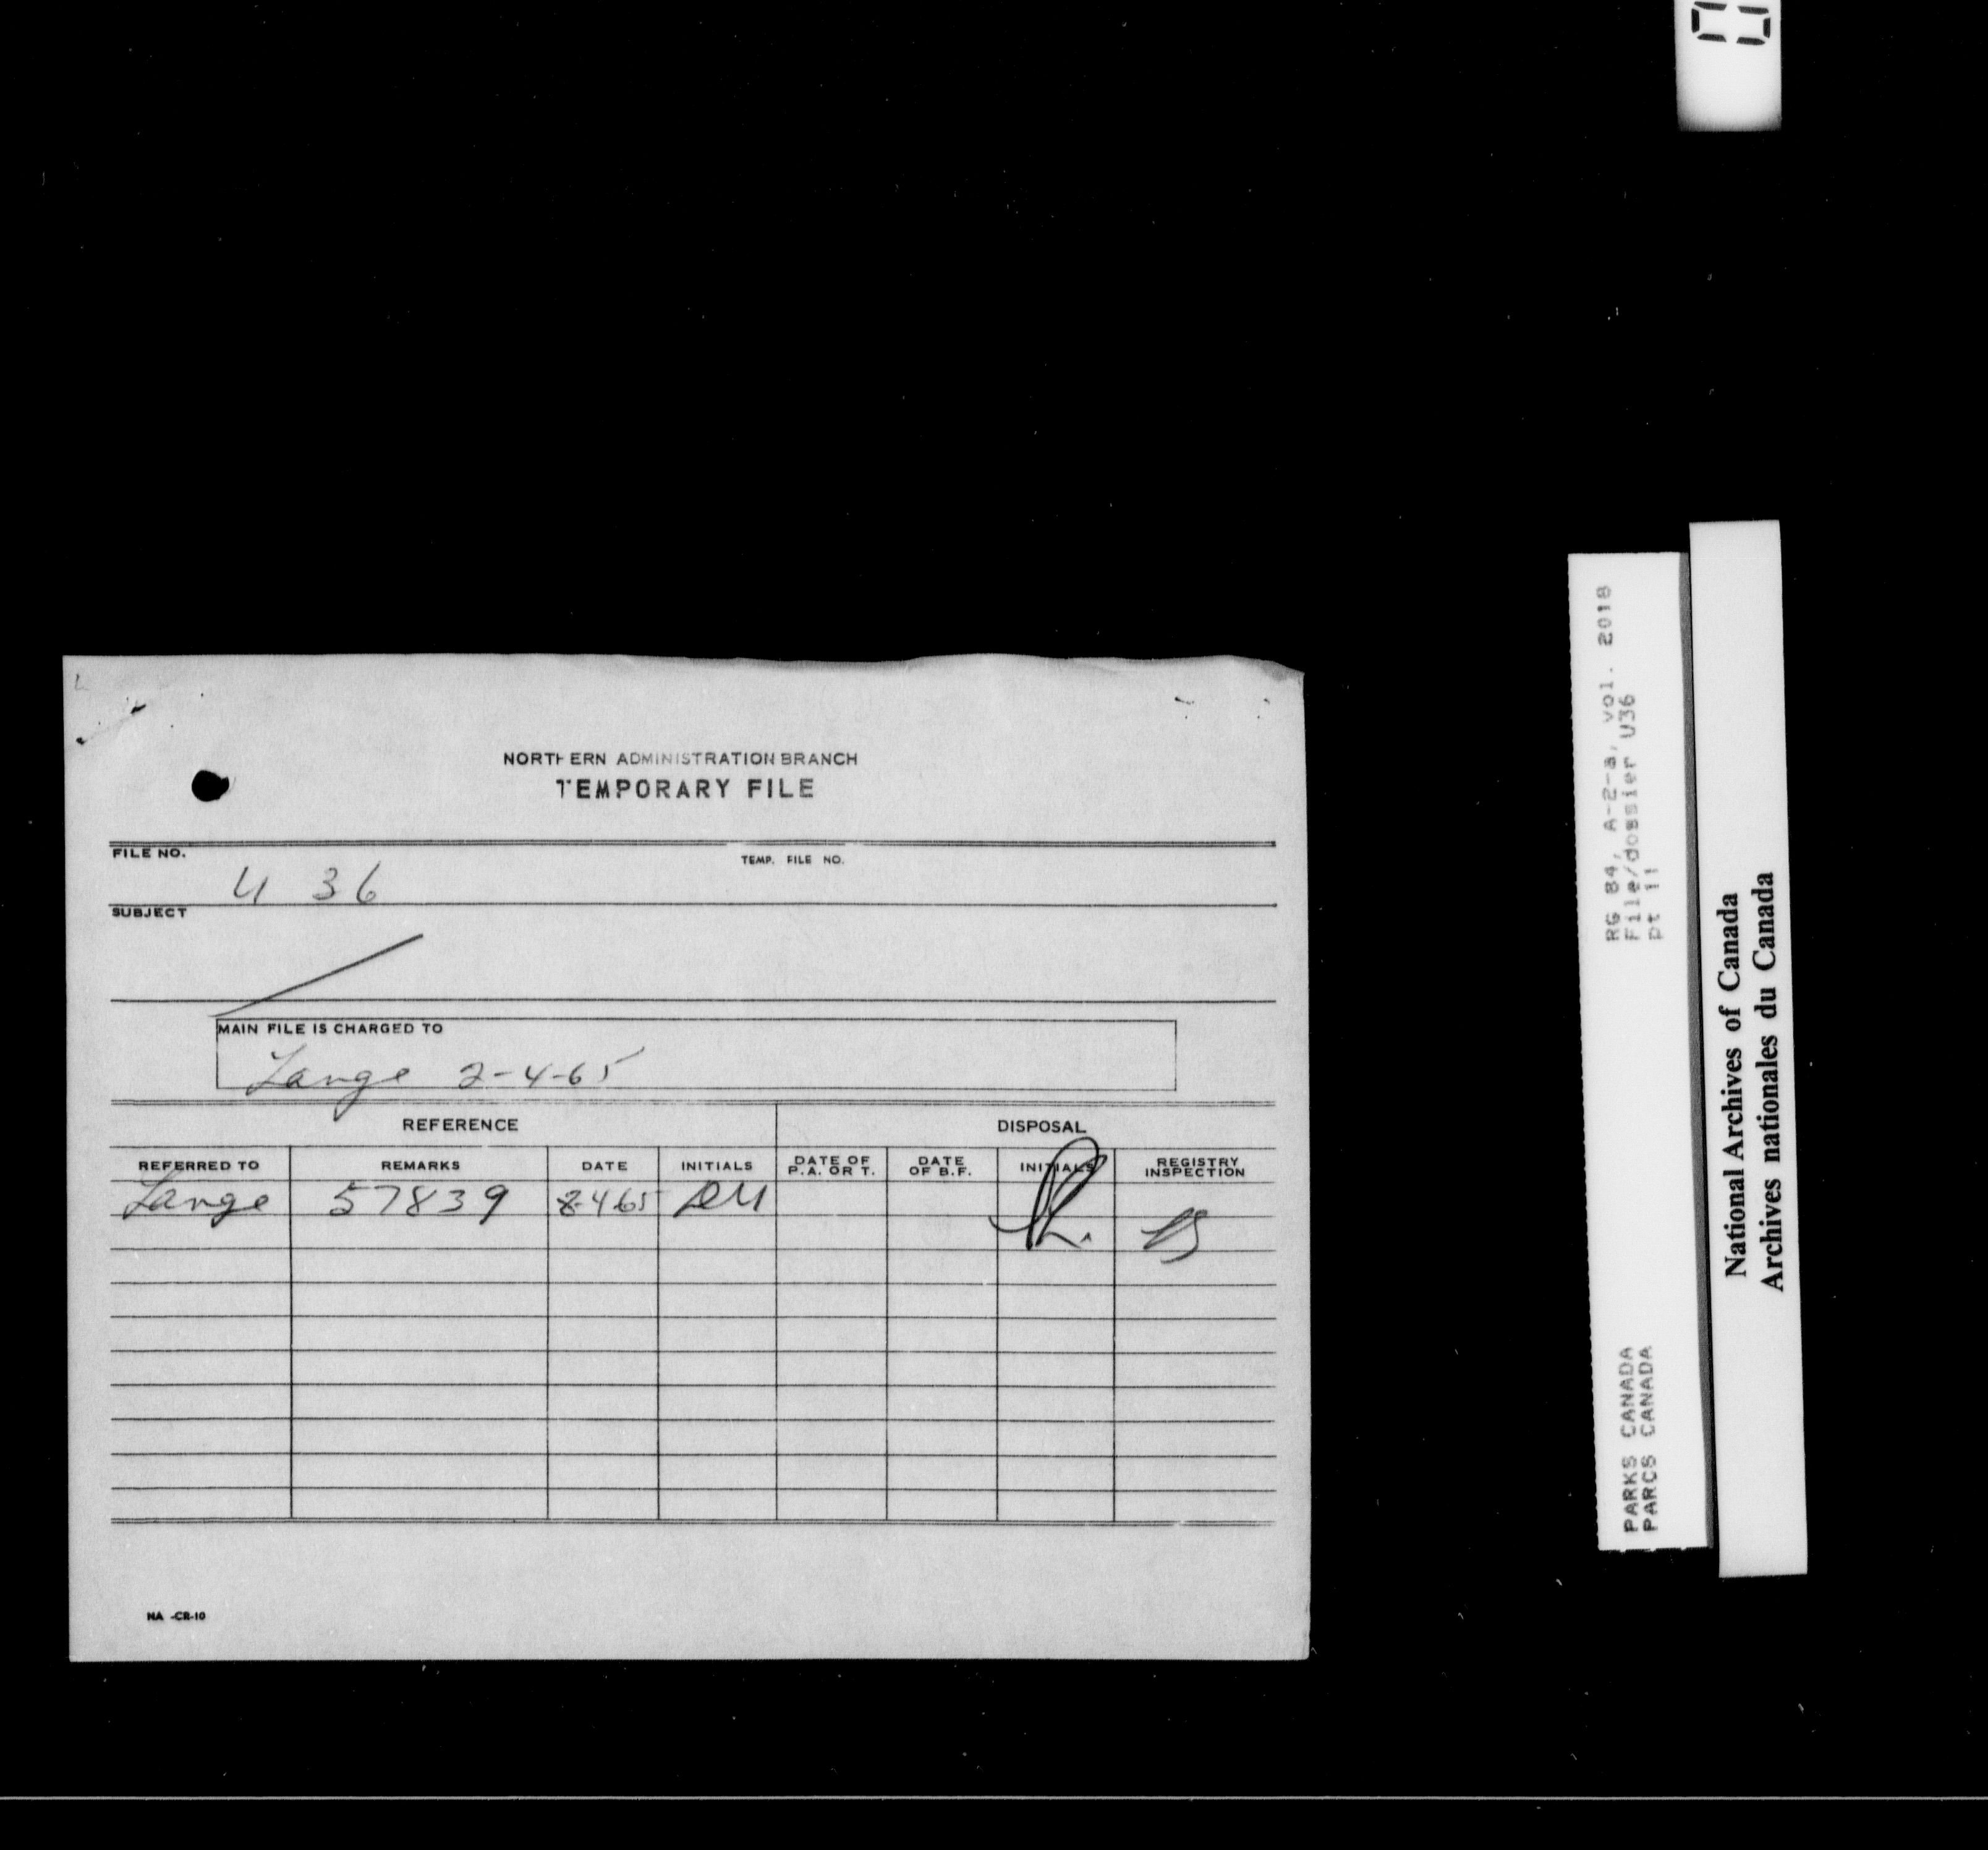 NORTHERN ADMINISTRATION BRANCH
TEMPORARY FILE
FILE NO.
TEMP. FILE NO.
U 36
SUBJECT
MAIN FILE IS CHARGED TO
Lange 2-4-65
REFERENCE DISPOSAL
REFERRED TO REMARKS DATE INITIALS DATE OF P.A. OR T. DATE OF B.F. INITIALS REGISTRY INSPECTION
Lange 57839 8-4-65
NA -CR-10
RG 84, A-2-a, vol. 2018
File/dossier U36
pt 11
PARKS CANADA
PARCS CANADA
National Archives of Canada
Archives nationales du Canada